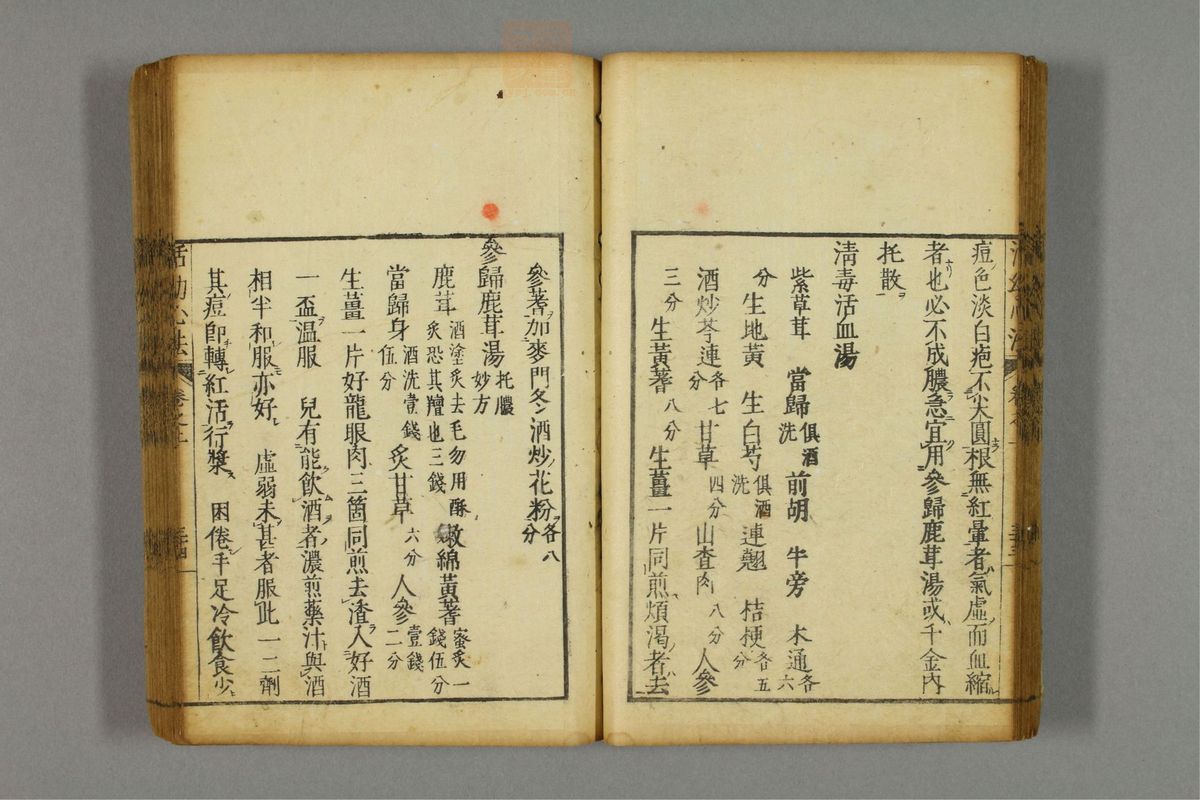 痘色淡白疤不尖圓根無紅暈者氣虛而血縮
者也必不成膿急宜用參歸鹿茸湯或千金內
托散
淸毒活血湯
紫草茸 當歸俱酒洗 前胡 牛旁 木通各六
分 生地黃 生白芍俱酒洗 連翹 桔梗各五分
酒炒芩連各七分 甘草四分 山査肉八分 人參
三分 生黃蓍八分 生薑一片同煎煩渴者去
參蓍加麥門冬酒炒花粉各八分
參歸鹿茸湯托膿妙方
鹿茸酒塗炙去毛勿用酥炙恐其羶也三錢 嫩綿黃蓍蜜炙一錢伍分
當歸身酒洗壹錢伍分 炙甘草六分 人參壹錢二分
生薑一片好龍眼肉三箇同煎去渣入好酒
一盃温服 兒有能飮酒者濃煎藥汁與酒
相半和服亦好 虛弱未甚者服此一二劑
其痘卽轉紅活行漿 困倦手足冷飮食少
活幼心法